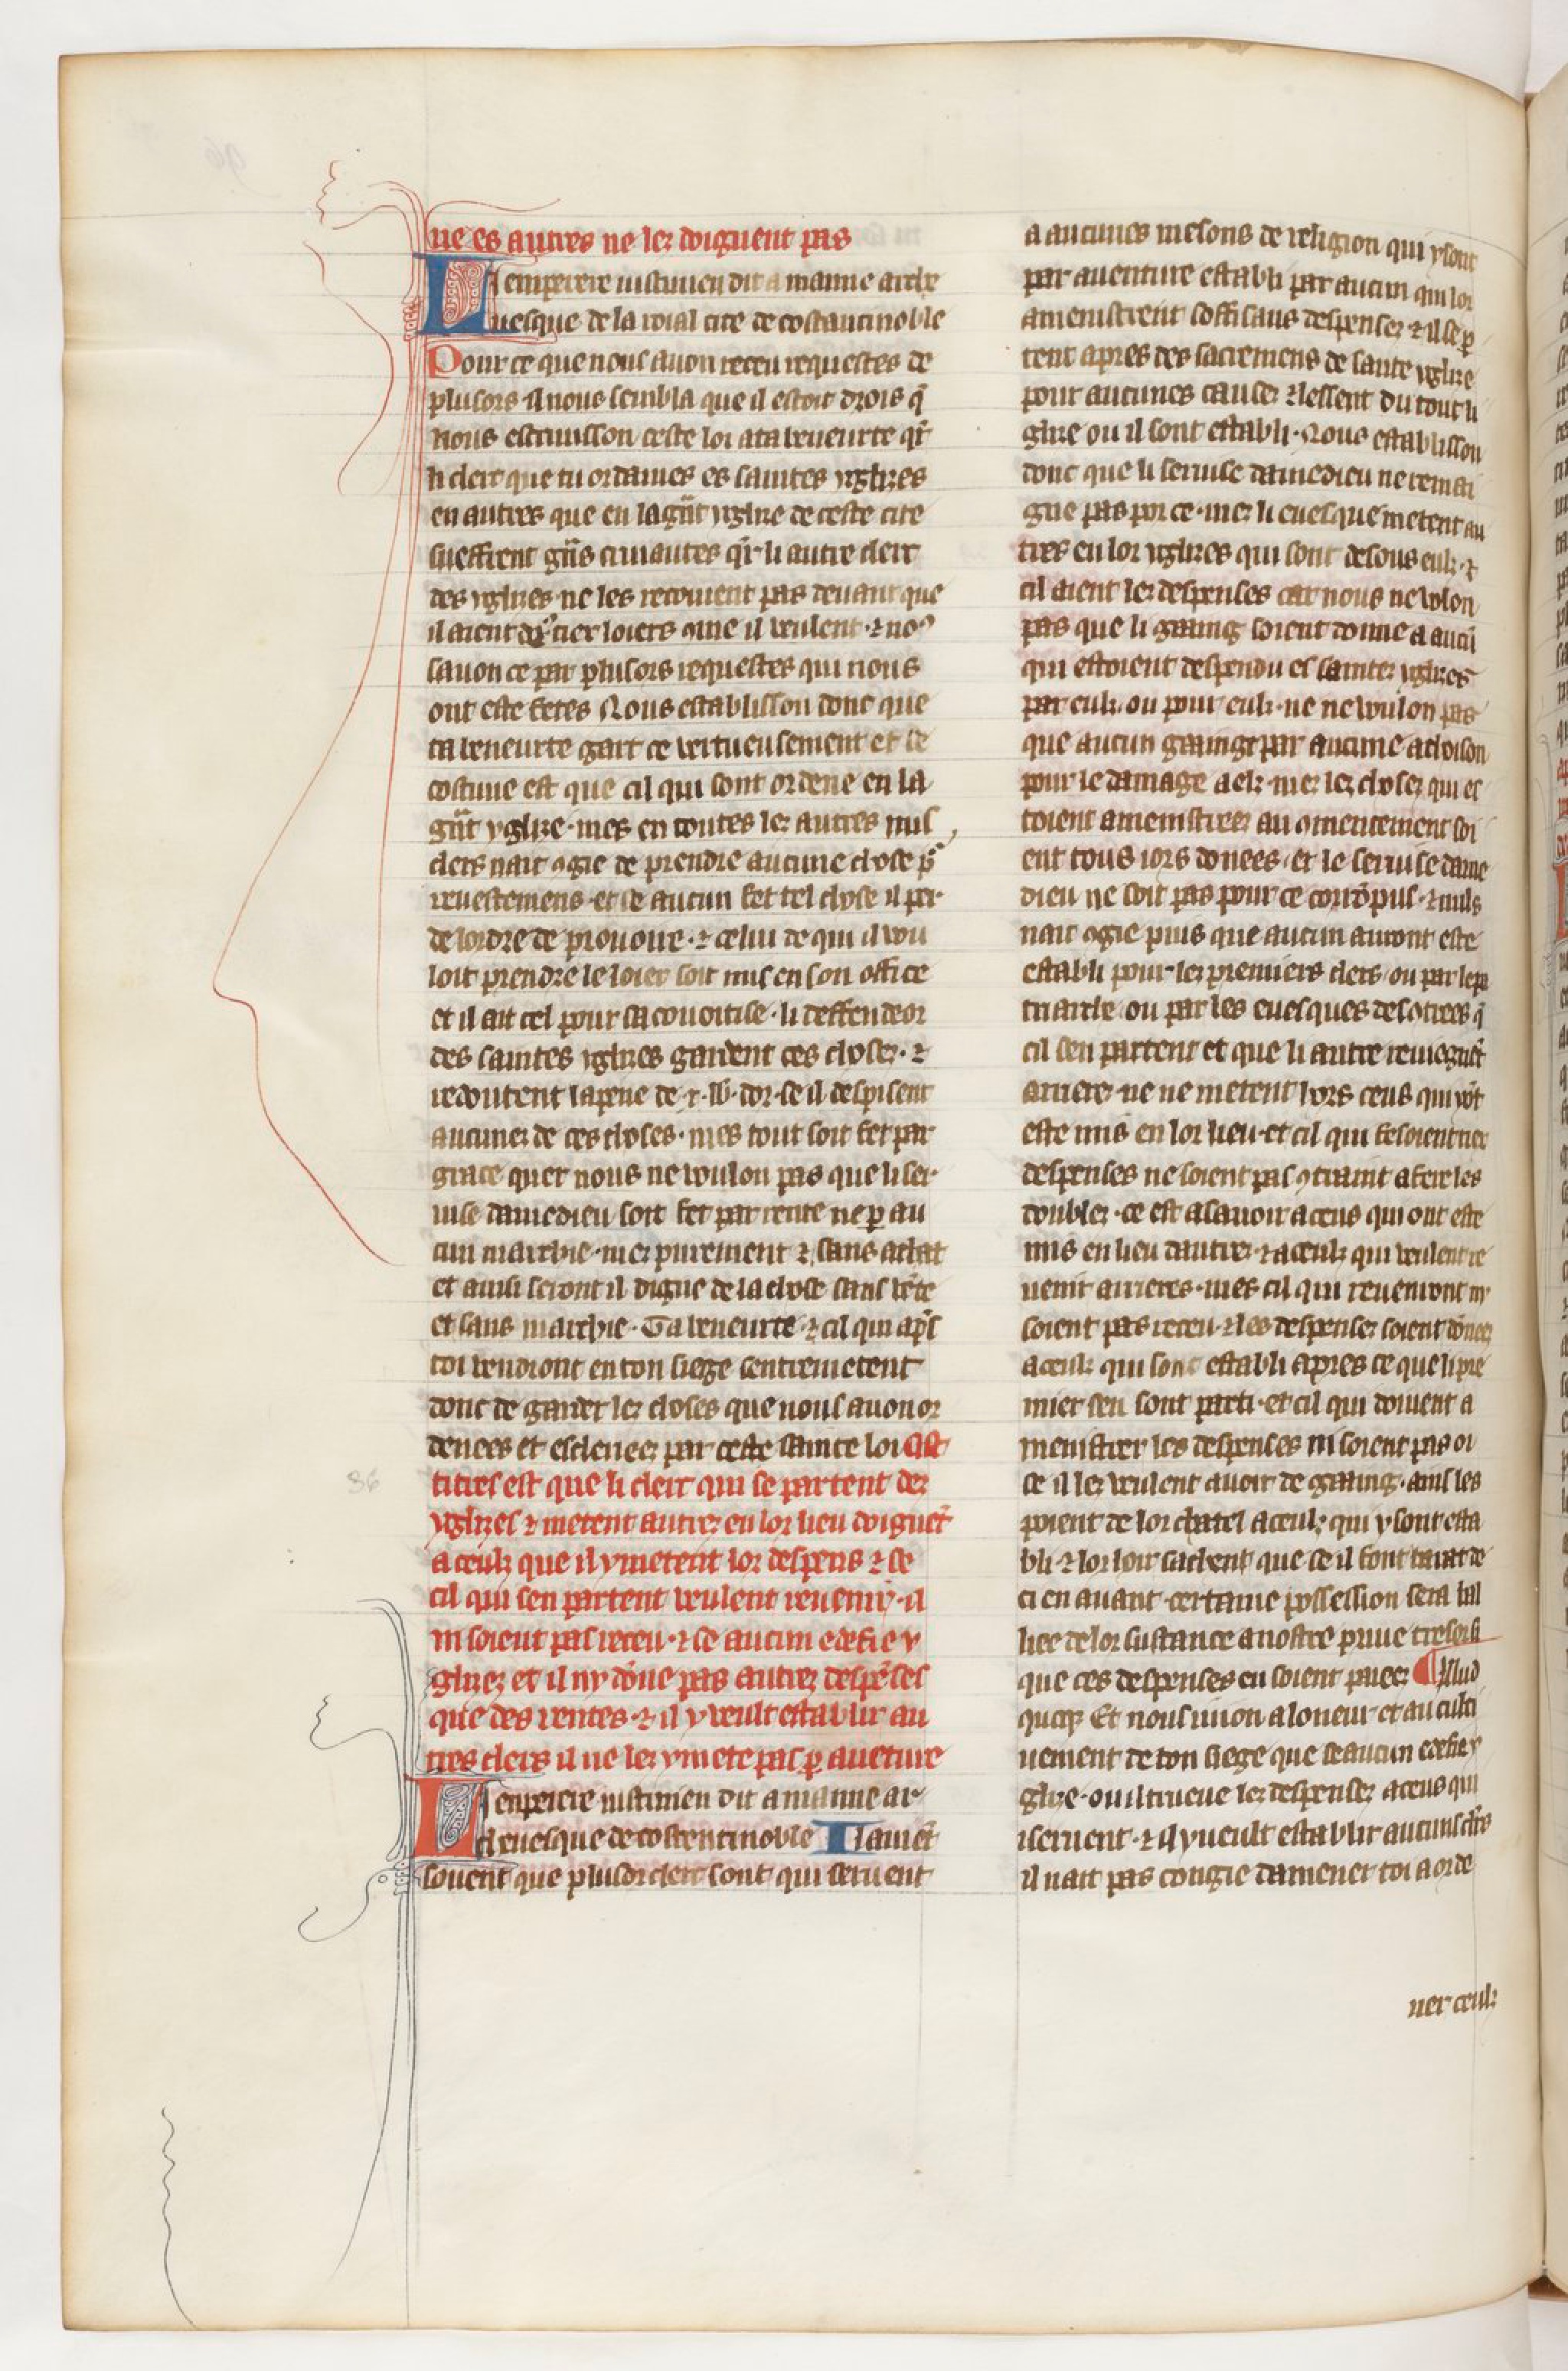 ue es autres ne lez doiguent pas
Lemperere iustinien dit a manne arche
uesque de la roial cite de costantinoble
Pour ce que nous auon receu requestes de
plusors il nous sembla que il estoit drois q̃
nous escriuisson ceste loi a ta beneurte qr̃
li clerc que tu ordaines es saintes yglizes
en autres que en la gñt yglize de ceste cite
sueffrent gñs cruiautes qr̃ li autre clerc
des yglizes ne les recoiuent pas deuant que
il aient loiers 9me il veulent ⁊ no9
sauon ce par plusors requestes qui nous
ont este fetes Nous establisson donc que
ta beneurte gart ce vertueusement et se
costume est que cil qui sont ordene en la
gñt yglize · mes en toutes lez autres nus
clers nait 9gie de prendre aucune chose p̃
reuestemens · et se aucun fet tel chose il per
de lordre de prouoire · ⁊ celui de qui il vou
loit prendre le loier soit mis en son office
et il ait cel pour sa couoitise · li deffendeor
des saintes yglizes gardent ces chosez · ⁊
redoutent la peine de · x · lb · dor · se il despisent
aucunez de ces choses · mes tout soit fet par
grace quer nous ne voulon pas que li ser
uise damedieu soit fet par rente ne p au
cun marchie · mez purement ⁊ sans achat
et ainsi seront il digne de la chose sans vẽte
et sans marchie · Ta beneurte ⁊ cil qui ap̃s
toi vendront en ton siege sentremetent
donc de garder lez choses que nous auon or
denees et escleriees par ceste sainte loi Cist
titres est que li clerc qui se partent dez
yglizes ⁊ metent autrez en lor lieu doiguẽt
a ceulz que il y metent lor despens ⁊ se
cil qui sen partent veulent reuenir · il
ni soient pas receu · ⁊ se aucun edefie y
glizez et il ny dõne pas autrez despẽses
que des rentes · ⁊ il y veult establir au
tres clers il ne lez y mete pas p auẽture
Lenperere iustinien dit a manne ar
cheuesque de costentinoble Il auiẽt
souent que plusor clerc sont qui seruent
a aucunes mesons de religion qui y sont
par auenture establi par aucun qui lor
amenistrent soffisans despensez ⁊ il se p
tent apres des sacremens de sainte yglize
pour aucunes causez ⁊ lessent du tout li
glize ou il sont establi · Nous establisson
donc que li seruise damedieu ne remai
gne pas por ce · mez li euesque metent au
tres en lor yglizes qui sont desous eulz · ⁊
cil aient lez despenses car nous ne volon
pas que li gaaing soient donne a aucũ
qui estoient despendu es saintez yglizes
par eulz ou pour eulz · ne ne voulon pas
que aucun gaainge par aucune achoison
pour le damage a elz · mez lez chosez qui es
toient amenistrees au 9mencement soi
ent tous iors donees · et le seruise dame
dieu ne soit pas pour ce corrõpus · ⁊ nuls
nait 9gie puis que aucun auront este
establi pour lez premiers clers ou par le pa
triarche ou par les euesques des 9trees q̃
cil sen partent et que li autre reuiegnẽt
arriere · ne ne metent hors ceus qui ont
este mis en lor lieu · et cil qui fesoient tiex
despenses ne soient pas 9traint a fere les
doublez · ce est a sauoir a ceus qui ont este
mis en lieu dautrez · ⁊ a ceulz qui veulent re
uenir arrieres · mes cil qui reuenront ni
soient pas receu · ⁊ les despensez soient dõnees
a ceulz qui sont establi apres ce que li pre
mier sen sont parti · et cil qui doiuent a
menistrer les despenses ni soient pas oi
se il lez veulent auoir de gaaing · ains les
poient de lor chatel a ceulz qui y sont esta
bli · ⁊ lor loir sachent que se il font barat de
ci en auant · certaine possession sera bal
liee de lor sustance a nostre priue tresor si
que ces despenses en soient paiees Illud
quoqz Et nous iuion a loneur et au culti
uement de ton siege que se aucun edefie y
glize · ou il trueue lez despensez a ceus qui
iseruent · ⁊ il y ueult establir aucuns clers
il nait pas congie damener toi a orde
ner ceulz
86